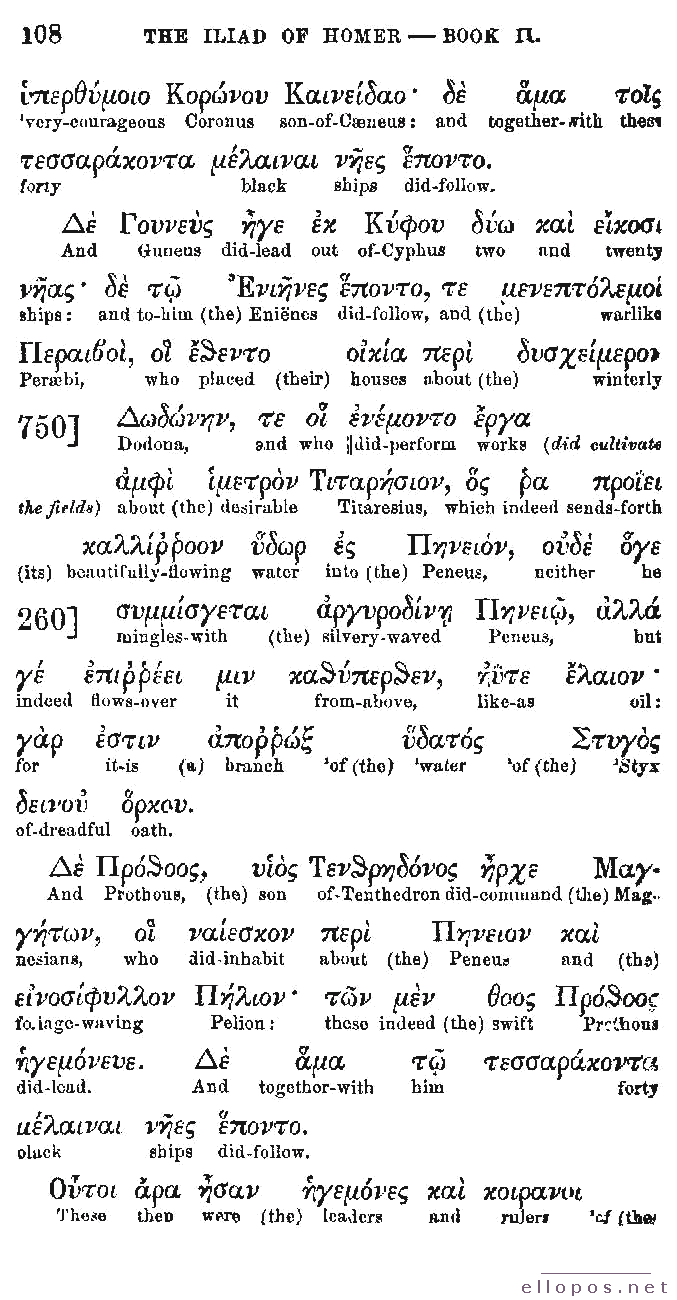 108 THE ILIAD OF HOMER — BOOK II.
ὑπερθύμοιο Κορώνου Καινείδαο· δὲ ἅμα τοῖς
very-courageous Coronus son-of-Cæneus: and together-with these
τεσσαράκοντα μέλαιναι νῆες ἕποντο.
forty black ships did-follow.
Δὲ Γουνεὺς ἦγε ἐκ Κύφου δύω καὶ εἴκοσι
And Guneus did-lead out of-Cyphus two and twenty
νῆας· δὲ τῷ Ἐνιῆνες ἕποντο, τε μενεπτόλεμοί
ships: and to-him (the) Eniēnes did-follow, and (the) warlike
Περαιβοὶ, οἳ ἔθεντο οἰκία περὶ δυσχείμερον
Peræbi, who placed (their) houses about (the) winterly
750] Δωδώνην, τε οἳ ἐνέμοντο ἔργα
Dodona, and who ||did-perform works (did cultivate
ἀμφὶ ἱμετρὸν Τιταρήσιον, ὅς ῥα προΐει
the fields) about (the) desirable Titaresius, which indeed sends-forth
καλλίῤῥοον ὕδωρ ἐς Πηνειόν, οὐδὲ ὅγε
(its) beautifully-flowing water into (the) Peneus, neither he
260] συμμίσγεται ἀργυροδίνῃ Πηνειῷ, ἀλλά
mingles-with (the) silvery-waved Peneus, but
γέ ἐπιῤῥέει μιν καθύπερθεν, ἠΰτε ἔλαιον·
indeed flows-over it from-above, like-as oil:
γὰρ ἐστιν ἀποῤῥώξ ὕδατός Στυγὸς
for it-is (a) branch ³of (the) ⁴water ³of (the) ³Styx
δεινοῦ ὅρκου.
of-dreadful oath.
Δὲ Πρόθοος, υἱὸς Τενθρηδόνος ἦρχε Μαγ-
And Prothous, (the) son of-Tenthedron did-command (the) Mag-
γήτων, οἳ ναίεσκον περὶ Πηνειον καὶ
nesians, who did-inhabit about (the) Peneus and (the)
εἰνοσίφυλλον Πήλιον· τῶν μὲν θοος Πρόθοος
foliage-waving Pelion: these indeed (the) swift Prothous
ἡγεμόνευε. Δὲ ἅμα τῷ τεσσαράκοντα
did-lead. And together-with him forty
μέλαιναι νῆες ἕποντο.
black ships did-follow.
Οὗτοι ἄρα ἦσαν ἡγεμόνες καὶ κοιρανοι
These then were (the) leaders and rulers of (the
ellopos.net